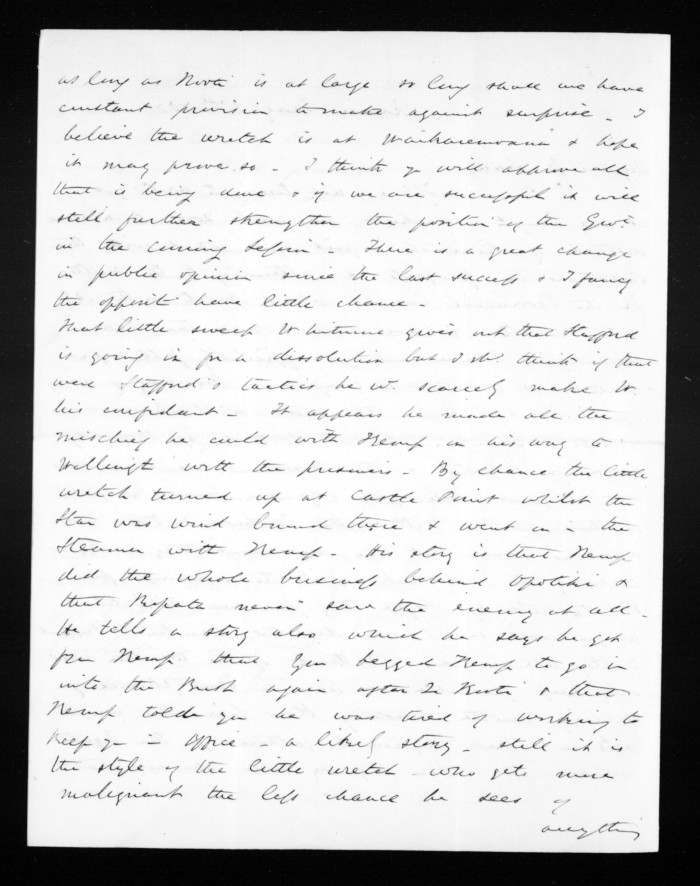 as long as Kooti is at large so long shall we have
constant provision to make against surprise - I
believe the wretch is at Waikaremoana & hope
it may prove so - I think you will approve all
that is being done & if we are successful it will
still further strengthen the position of the Govt.
in the coming Session - There is a great change
in public opinion since the last success & I fancy
the opposit have little chance -
That little sweep Whitmore gives out that Stafford
is going in for a dissolution but I shd. think if that
were Stafford's tactics he wd. scarcely make W.
his confidant - It appears he made all the
mischief he could with Kemp on his way to
Wellingt with the prisoners - By chance the little
wretch turned up at Castle Point whilst the
Star was wind bound there & went on in the
Steamer with Kemp - His story is that Kemp
did the whole business behind Opotiki &
that Ropata never saw the enemy at all -
He tells a story also which he says he got
from Kemp that you begged Kemp to go in
into the Bush again after Te Kooti & that
Kemp told you he was tired of working to
keep you in office - a likely story - still it is
the style of the little wretch who gets more
malignant the less chance he sees of
anything